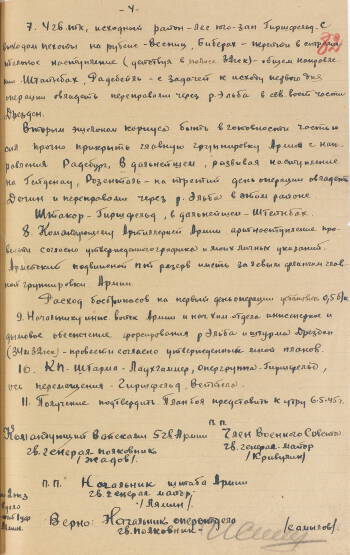 - 4 -
32
7. 4 гв. тк, исходный район - лес юго-зап Гиршфельд. С
выходом пехоты на рубеж - Весниц, Биберах - перейти в стреми
тельное наступление (действуя в полосе 32 ск) - общем направле
нии Штайнбах, Радебейль - с задачей к исходу первого дня
операции овладеть переправами через р. Эльба в сев. вост. части
Дрезден.
Вторым эшелоном корпуса быть в готовности частью
сил прочно прикрыть главную группировку Армии с на-
правления Радебург. В дальнейшем, развивая наступление
на Гейденау, Розенталь - на третий день операции овладеть
Дечин и переправами через р. Эльба в этом районе
Гиршфельд, в дальнейшем - Штейнбах.
8. Командующему Артиллерией Армии артнаступление про-
вести согласно утвержденного графика и моих личных указаний.
Армейский подвижной пт резерв иметь за левым флангом глав-
ной группировки Армии.
Расход боеприпасов на первый день операции установить 0,5 б/к.
9. Начальнику инж. войск Армии и нач. хим. отдела инженерное и
дымовое обеспечение форсирования р. Эльба и штурма Дрезден
(34 и 32 ск) - провести согласно утвержденных мной планов.
10. КП. штарма - Лаухгаммер, опергруппа - Гиршфельд,
ось перемещения - Гиршфельд,
11. Получение подтвердить. План боя представить к утру 6.5.45 г.
П.П.
Командующий Войсками 5 гв. Армии
Член Военного Совета
гв. генерал полковник
гв. генерал-майор
/Жадов/
/Кривулин/
П.П.
Начальник штаба Армии
гв. генерал майор
/Лямин/
Верно: Начальник оперотдела
гв. полковник